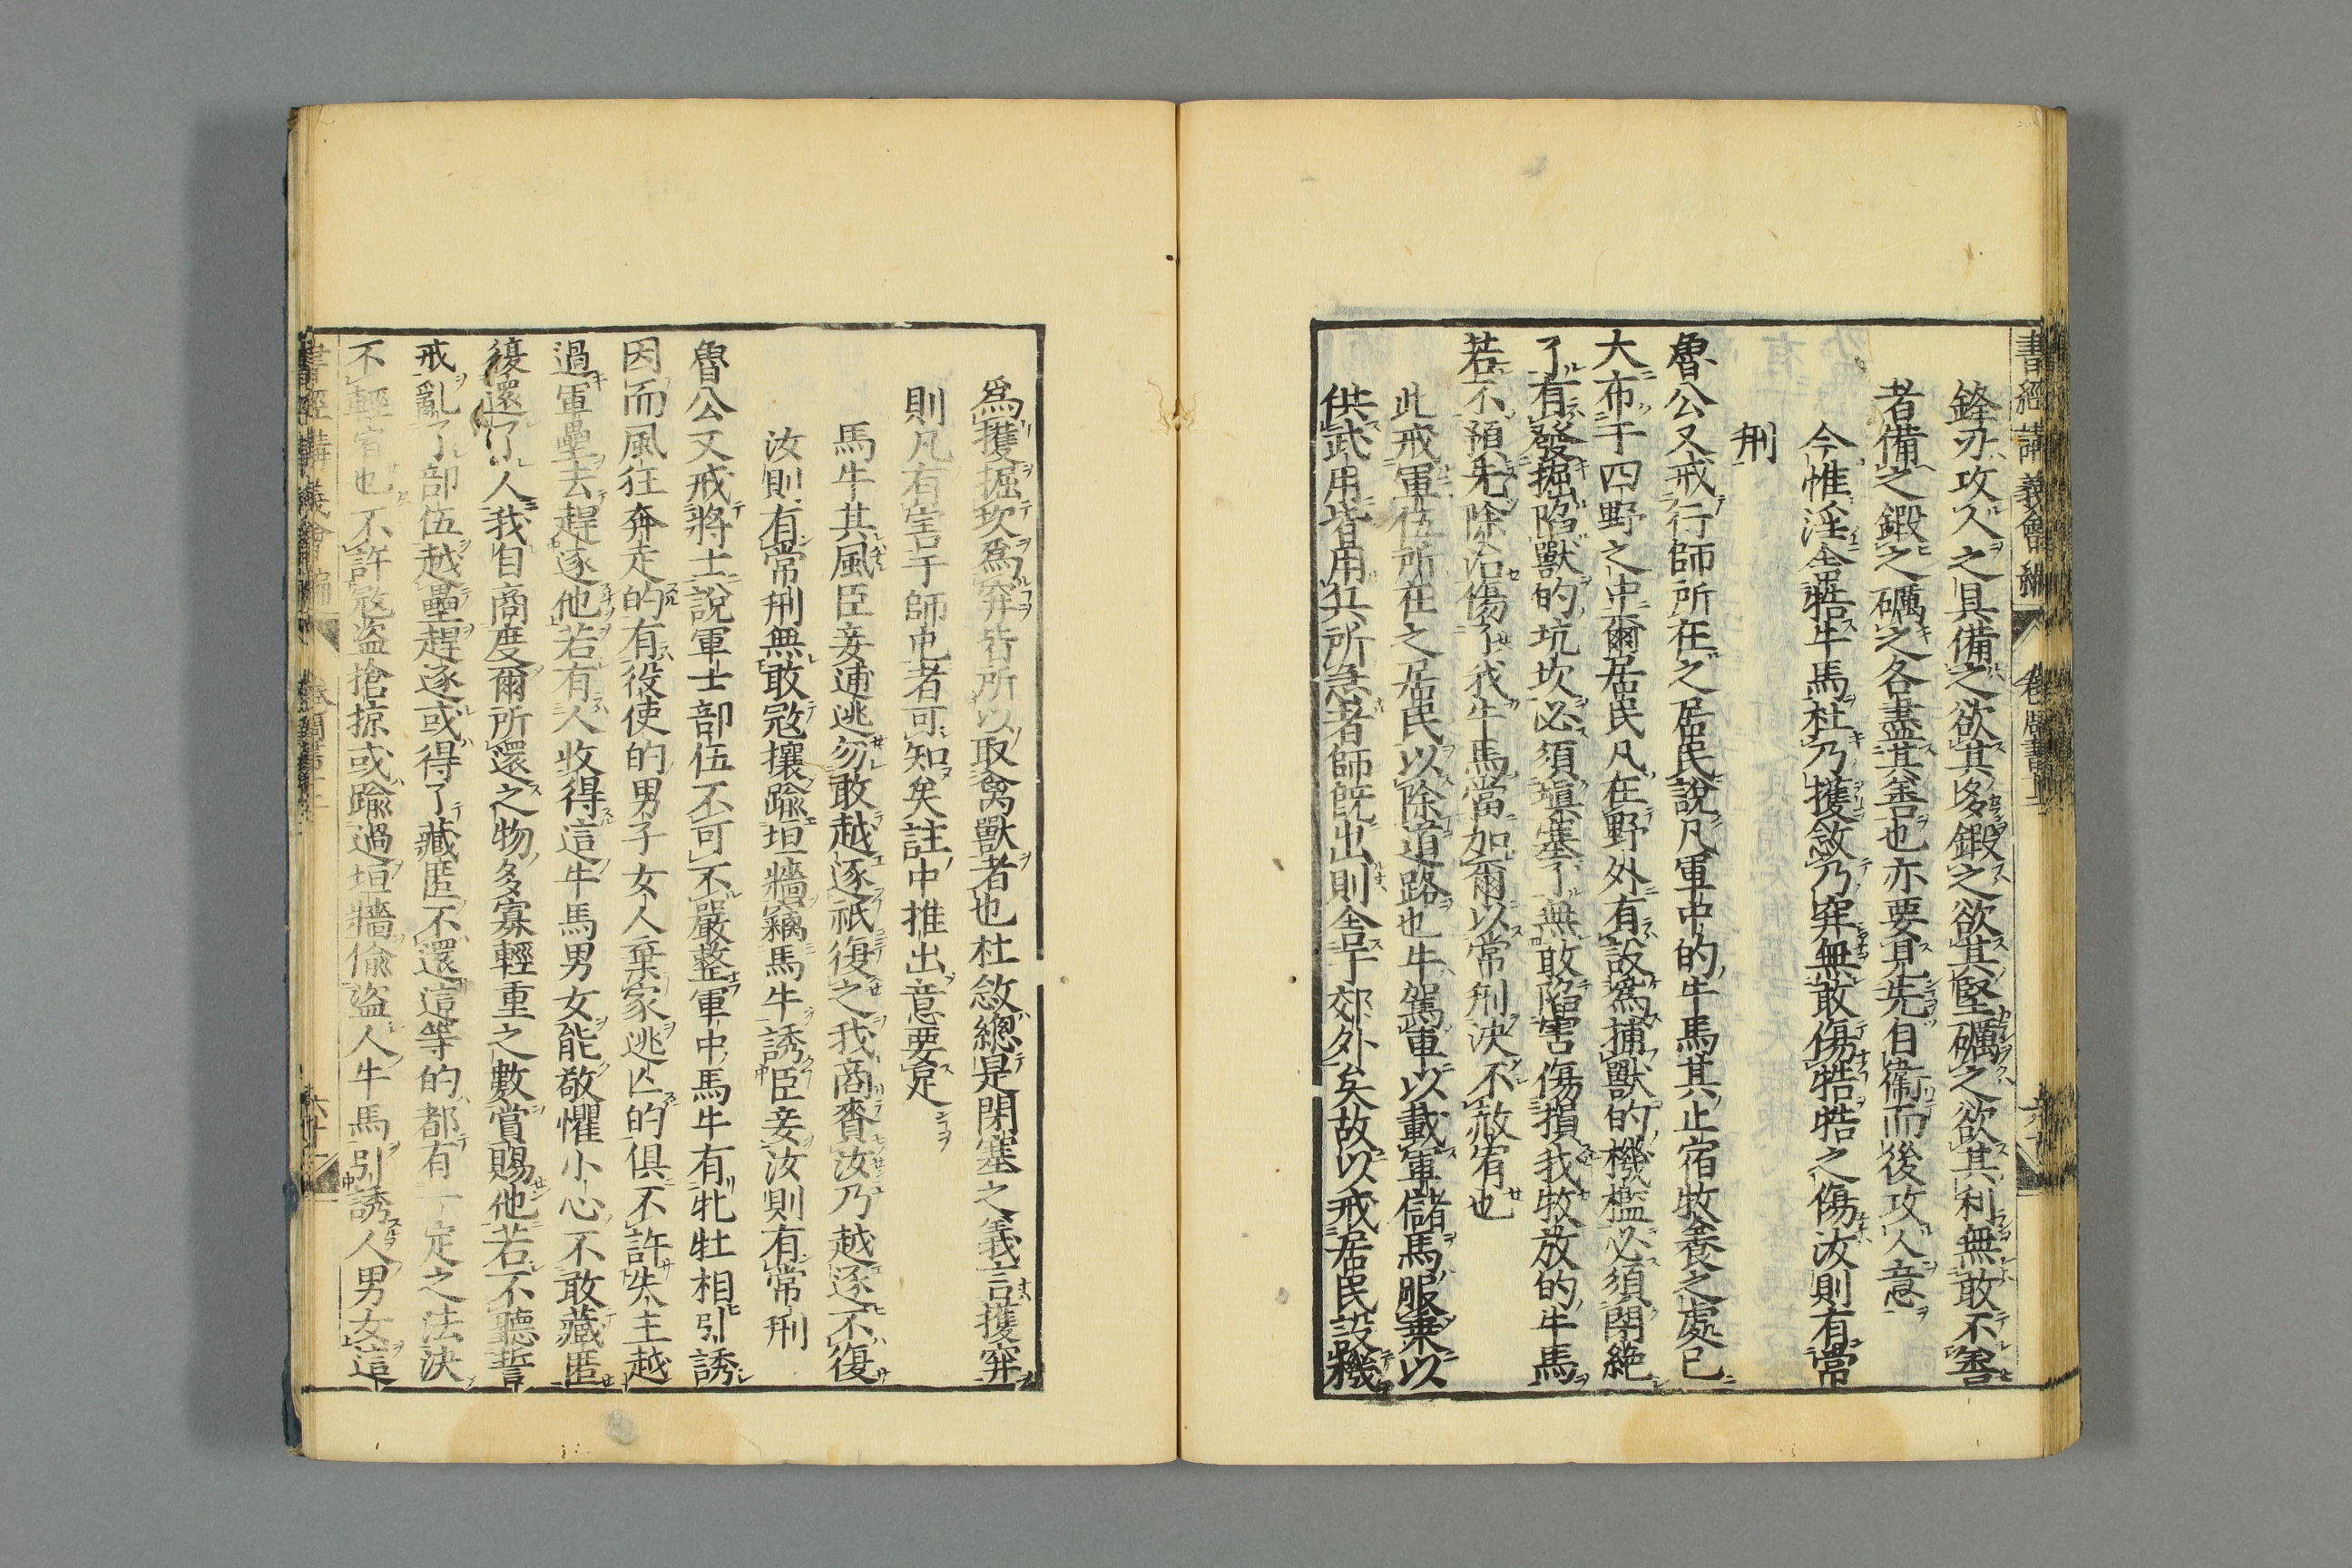 書經講義會編
鋒刃攻人之具備之欲其多鍛之欲其堅礪之欲其利無敢不善
者備之鍛之礪之各盡其善也亦要見先自衞而後攻人意
今惟淫舍牿牛馬杜乃擭敜乃穽無敢傷牿牿之傷汝則有常
刑
魯公又戒行師所在之居民說凡軍中的牛馬其止宿牧養之處已
大布于四野之中爾居民凡在野外有設爲捕獸的機檻必須閉絶
了有發掘陷獸的坑坎必須塡塞了無敢陷害傷損我牧放的牛馬
若不預先除治傷了我牛馬當加爾以常刑決不赦宥也
此戒軍伍所在之居民以除道路也牛駕車以載軍儲馬服乗以
供武用皆用兵所急者師旣出則舍于郊外矣故以戒居民設機
爲擭掘坎爲穽皆所以取禽獸者也杜敜總是閉塞之義言擭穽
則凡有害于師屯者可知矣註中推出意要足
馬牛其風臣妾逋逃勿敢越逐祇復之我商賚汝乃越逐不復
汝則有常刑無敢㓂攘踰垣牆竊馬牛誘臣妾汝則有常刑
魯公又戒將士說軍士部伍不可不嚴整軍中馬牛有牝牡相引誘
因而風往奔走的有役使的男子女人棄家逃亾的俱不許失主越
過軍壘去趕逐他若有人收得這牛馬男女能敬懼小心不敢藏匿
復還了人我自商度爾所還之物多寡輕重之數賞賜他若不聽誓
戒亂了部伍越壘趕逐或得了藏匿不還這等的都有一定之法決
不輕宥也不許㓂盗搶掠或踰過垣牆偸盜人牛馬引誘人男女這
書經講義會編